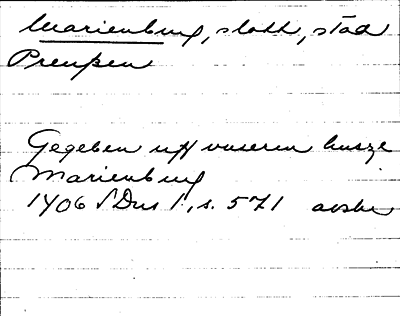 Marienburg, slott, stad
Preußen
Gegeben uff unserem husze
Marienburg
1406 SDns 1, s. 571 avskr